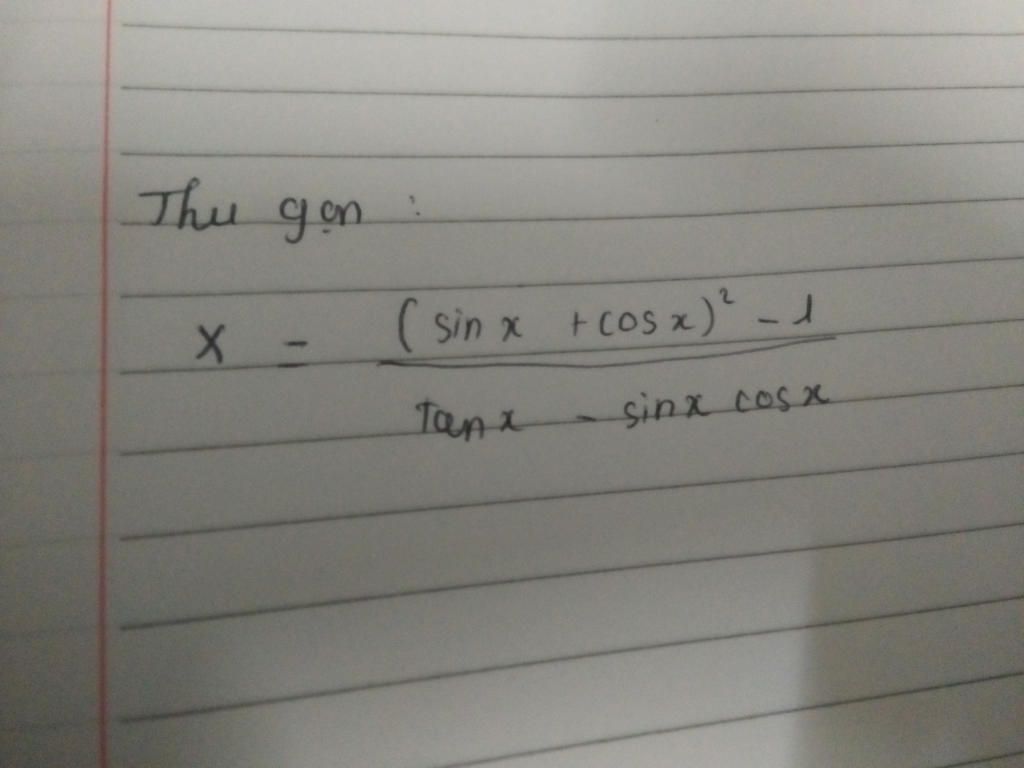 Thu gọn :
X = (sin x + cos x)² - 1
tan x - sin x cos x